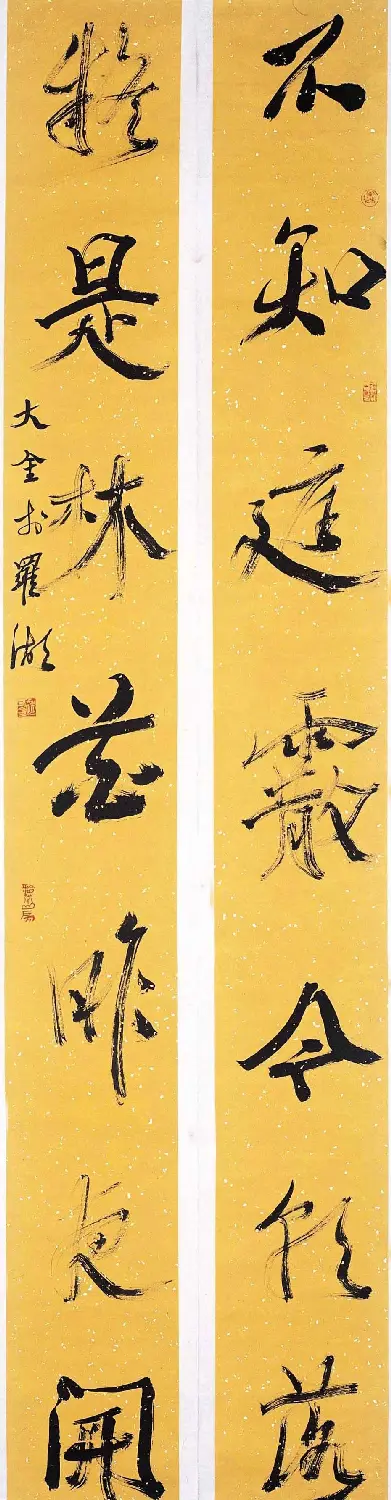 不知庭霰今朝落
疑是林花昨夜開
大金於羅湖